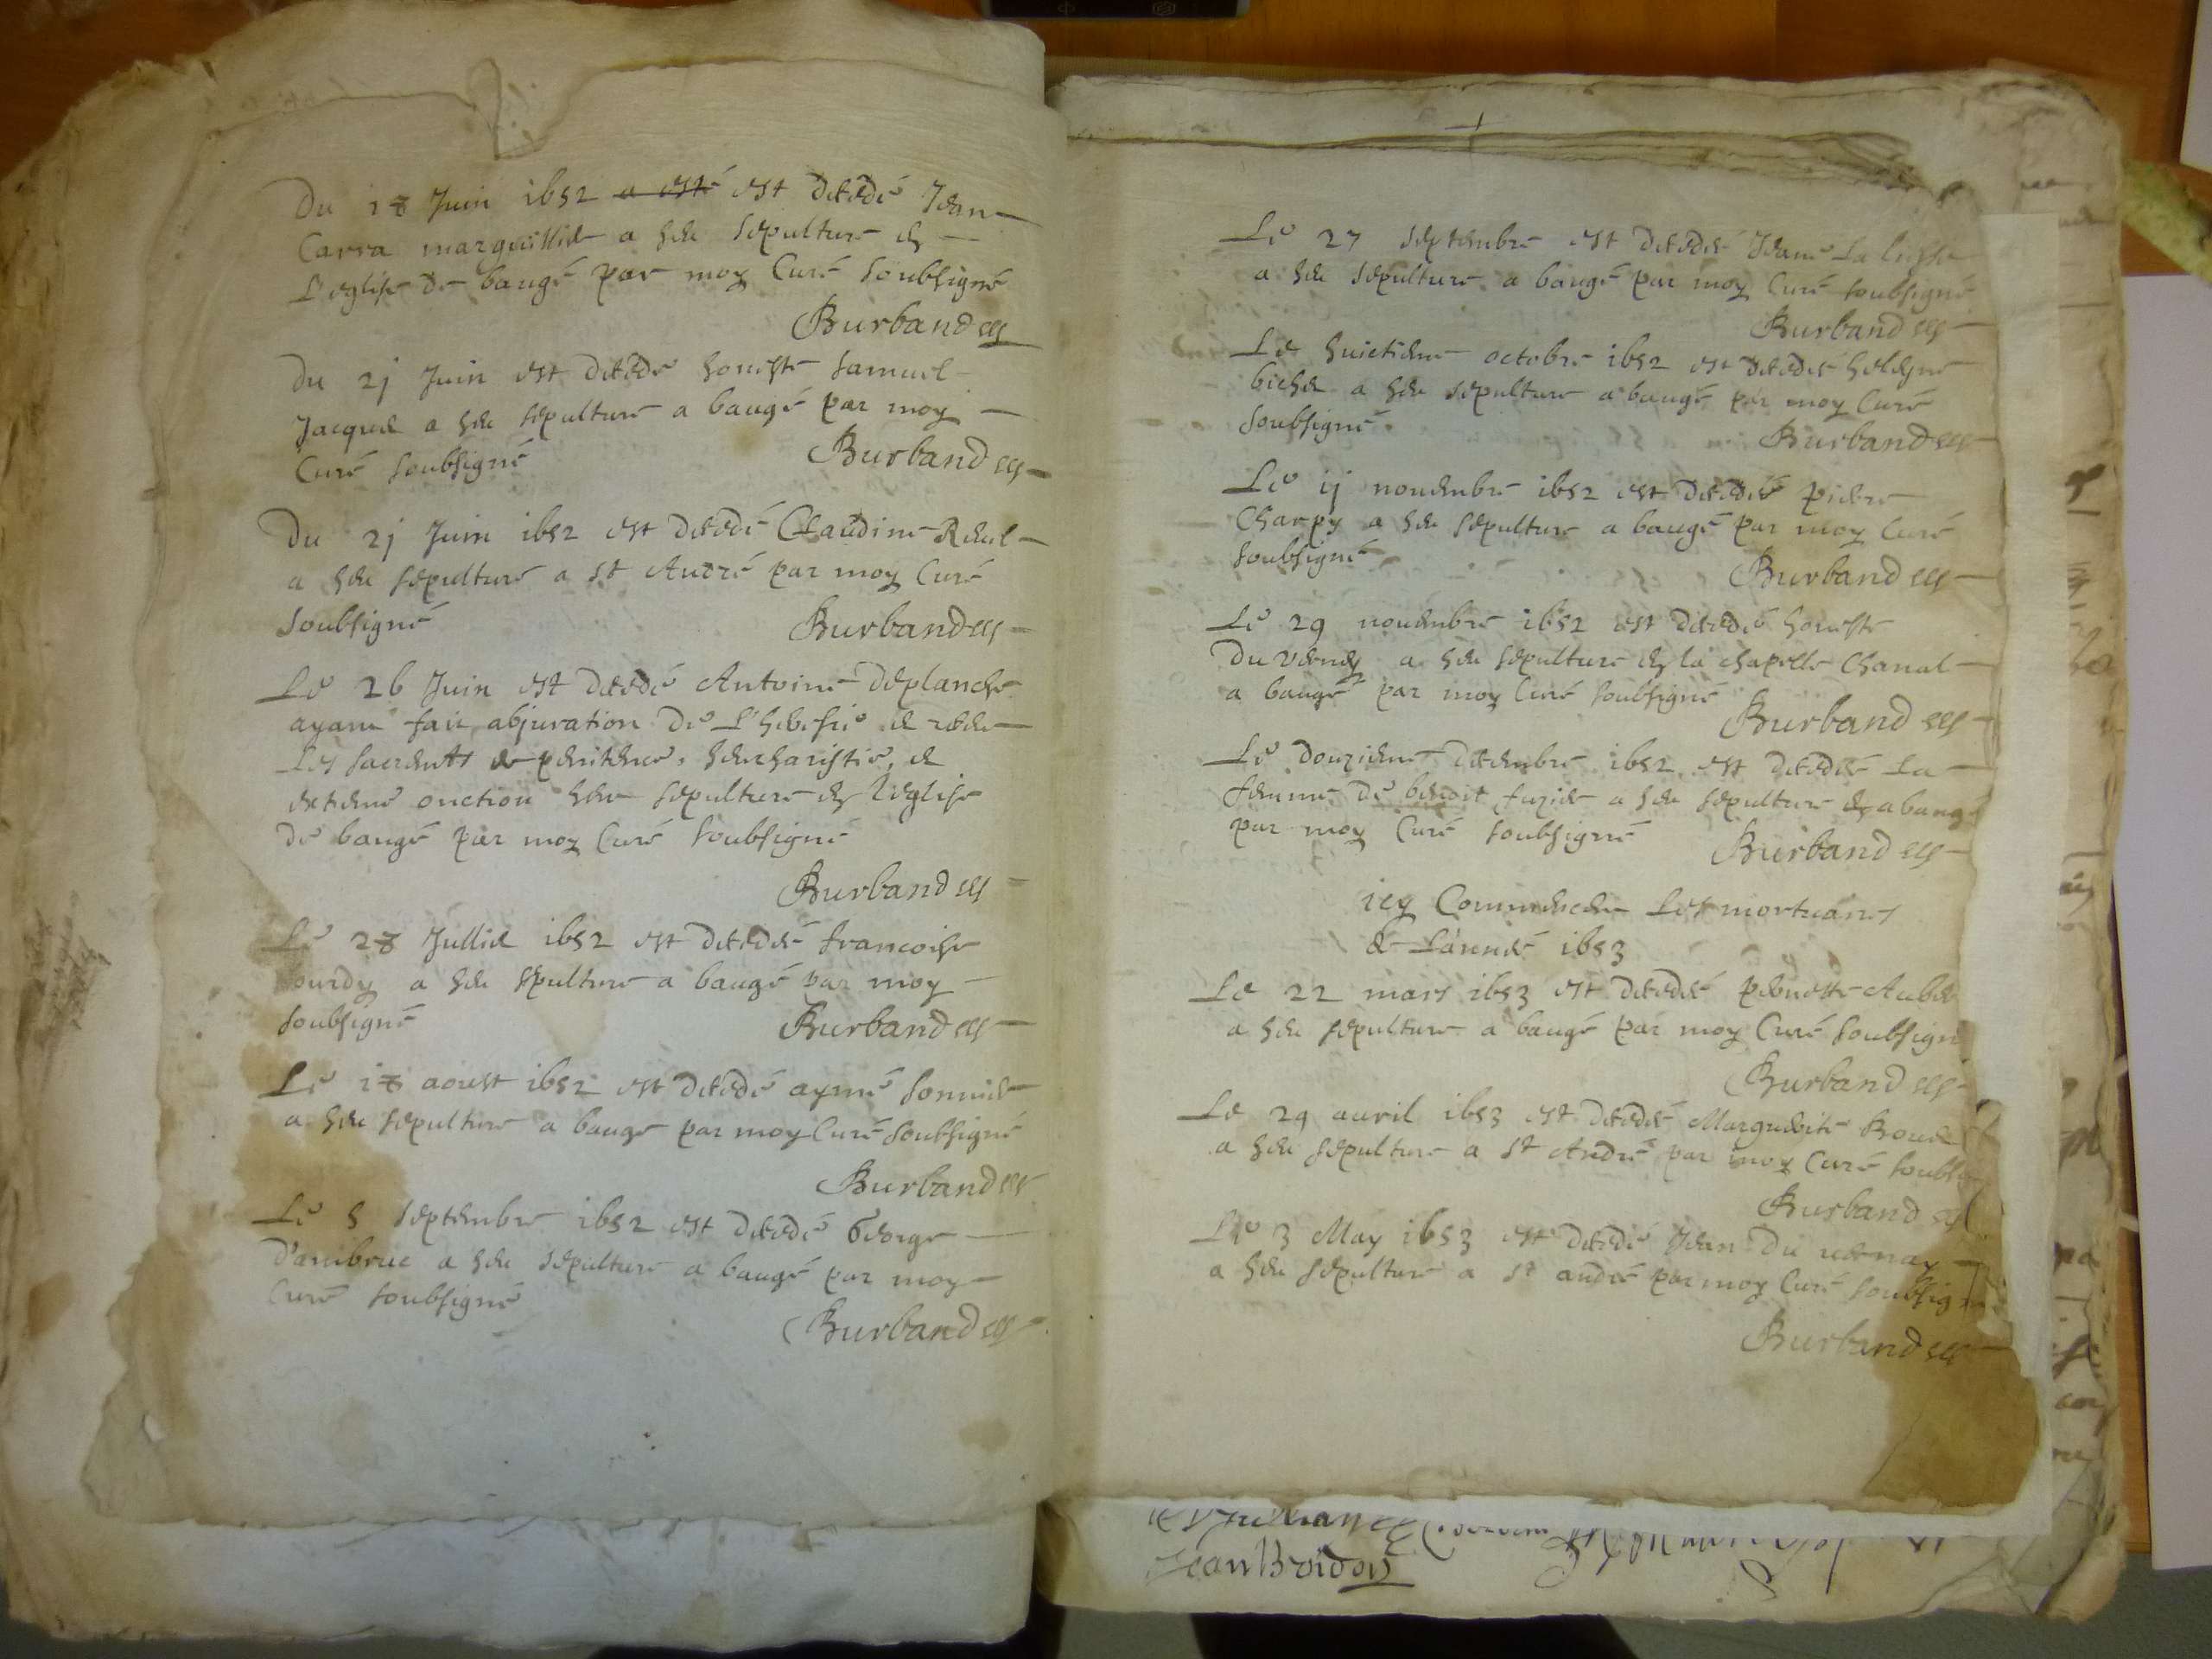 Du 18 Juin 1652 a esté est decedé Jean
Carra marguillier a heu sepulture en
L'eglise de baugé par moy Curé soubsigné
Burband
Du 21 Juin est decedé honeste Samuel
Jacquet a heu sepulture a baugé par moy
Curé soubsigné Burband
Du 21 Juin 1652 est decedé Claudine
a heu sepulture a St André par moy Curé
soubsigné Burband
Le 26 Juin est decedé Antoine deplanche
ayant fait abjuration de L'heresie et receu
Les sacrements de penitence, heucharistie, et
extreme onction heu sepulture en l'eglise
de baugé par moy Curé soubsigné
Burband
Le 28 Julliet 1652 est decedée francoise
a heu sepulture a baugé par moy
soubsigné Burband
Le 18 aoust 1652 est decedé aymé
a heu sepulture a baugé par moy Curé soubsigné
Burband
Le 5 septembre 1652 est decedé George
Dambruc a heu sepulture a baugé par moy
Curé soubsigné
Burband
Le 27 septembre est decedée Jeane
a heu sepulture a baugé par moy Curé soubsigné
Burband
Le huictieme octobre 1652 est decedée
a heu sepulture a baugé par moy Curé
soubsigné Burband
Le 11 novembre 1652 est decedé piere
Charpy a heu sepulture a baugé par moy Curé
soubsigné Burband
Le 29 novembre 1652 est decedé honeste
Du verney a heu sepulture en la chapelle Chanal
a baugé par moy Curé soubsigné
Burband
Le douzieme decembre 1652 est decedée La
femme de benoit a heu sepulture a baugé
par moy Curé soubsigné Burband
icy Commencent Les mortuaires
de Lannée 1653
Le 22 mars 1653 est decedée pernette
a heu sepulture a baugé par moy Curé soubsigné
Burband
Le 29 avril 1653 est decedée Marguerite
a heu sepulture a St André par moy Curé
Burband
Le 3 May 1653 est decedé Jean Du vernay
a heu sepulture a St andré par moy Curé
Burband
Jean